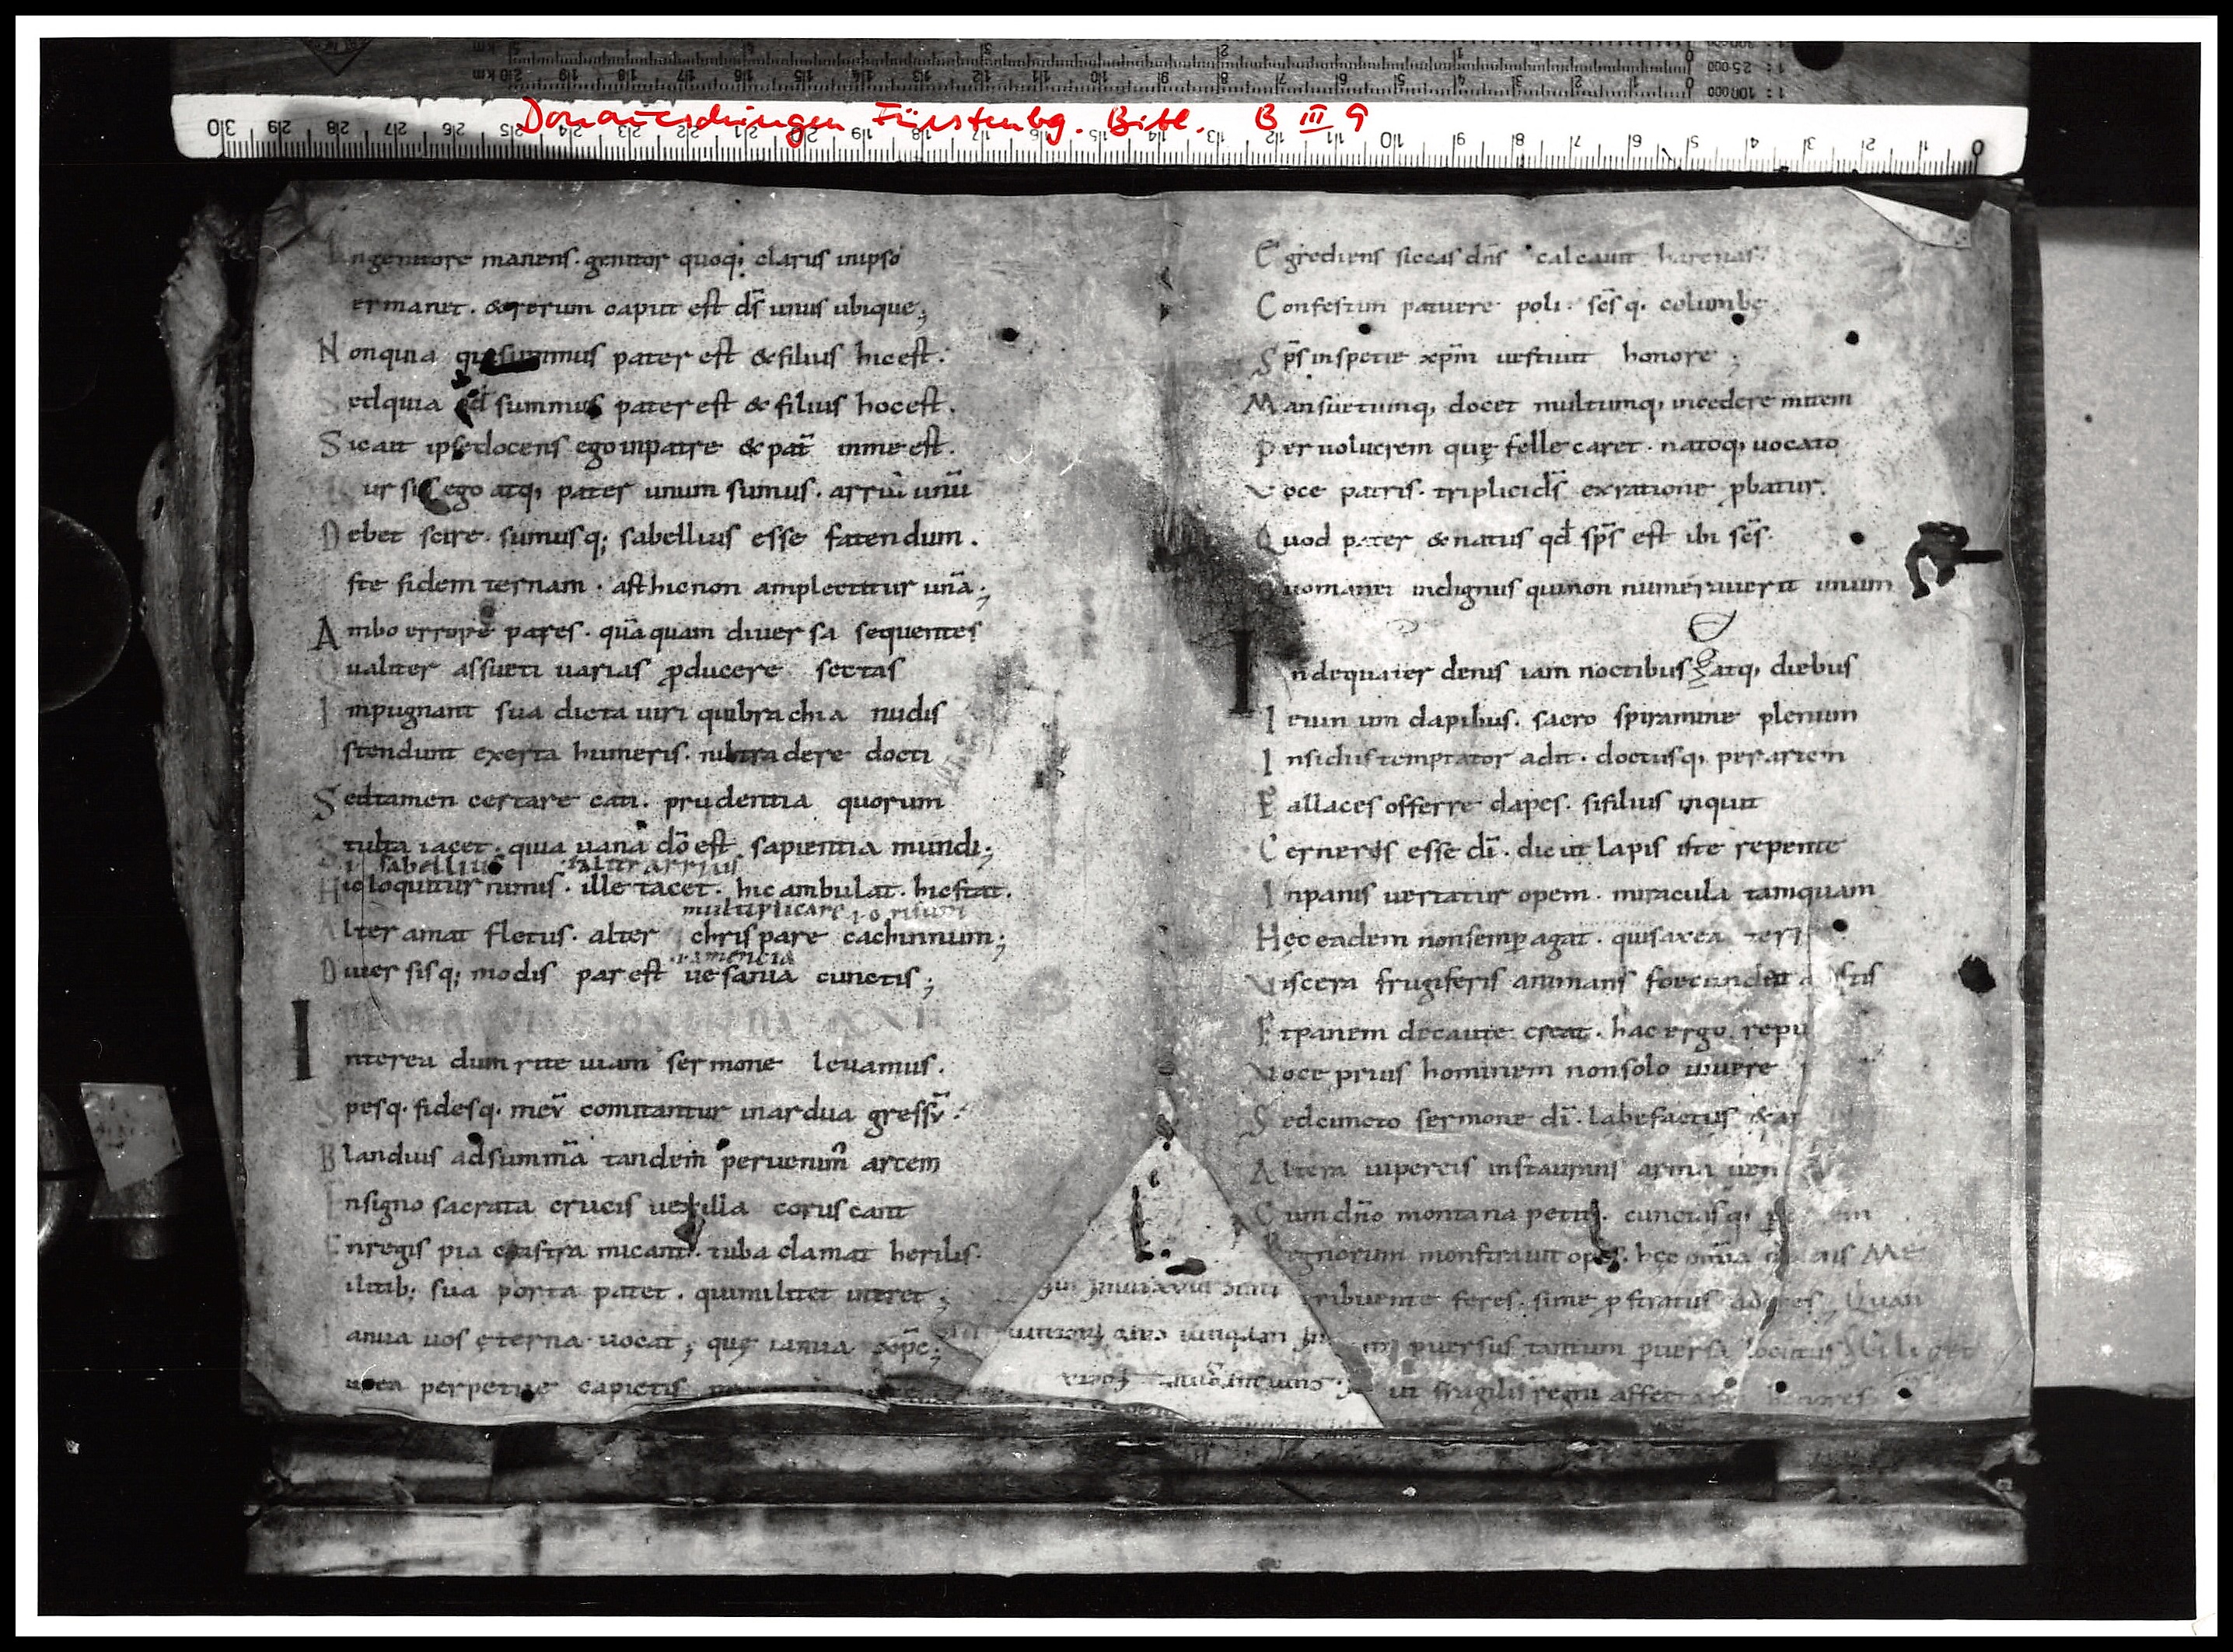 Donaueschingen Fürstenbg. Bibl. B III 9
Ingenitore manens. genitor quoq; clarus inipso
ermanet. & rerum caput est ds̄ unus ubique;
Nonquia qui summus pater est & filius hicest.
Sedquia qd̄ summus pater est & filius hocest.
Sicuti ipsedocens egoinpatre & pat̄ inme est.
ur sic ego atq; pater unum sumus. arriū unū
Debet scire. sumusq; sabellius esse fatendum.
Iste fidem ternam. asthicnon amplectitur unā;
Ambo errore pares. quāquam diuersa sequentes
Qualiter assueti uarias ꝓducere sectas
Impugnant sua dicta uiri quibrachia nudis
Istendunt exerta humeris. dere docti
Sedtamen certare cati. prudentia quorum
Stulta iacet. quia uana dō est sapientia mundi;
i sabellius arrius
Hicloquitur nimis. ille tacet. hic ambulat. hicstat.
multiplicare risum
Alter amat fletus. alter chrispare cachinnum;
amencia
Diuersisq; modis par est uesania cunctis;
Interea dum rite uiam sermone leuamus.
Spesq. fidesq. meū comitantur inardua gressū.
Blandius adsummā tandem peruenim̄ arcem
Insigno sacrata crucis uexilla coruscant
Enregis pia castra micant. tuba clamat herilis.
ilitib; sua porta patet. quimilitet intret;
Ianua uos ęterna uocat; quę ianua xp̄c;
urea perpetue capietis
Egrediens siccas dn̄s calcauit harenas.
Confestim patuere poli. scs̄ q. columbę
Sps̄ inspecie xpm̄ uestiuit honore;
Mansuetumq; docet multumq; incedere mitem
Per uolucrem quę felle caret. natoq; uocato
Voce patris. triplicids̄ exratione ꝓbatur.
Quod pater & natus qd̄ sps̄ est ibi scs̄.
Quomanet indignus quinon numerauerit unum
Indequater denis iam noctibus atq; diebus
Ieiunium dapibus. sacro spiramine plenum
Insidiis temptator adit. doctusq; perartem
Fallaces offerre dapes. sifilius inquit
Cerneris esse dī. dic ut lapis iste repente
Inpanis uertatur opem. miracula tamquam
Hęc eadem nonsemꝑ agat. quisaxea
Viscera frugiferis animans foecundat
Etpanem decaute creat. hac ergo repu
Voce prius hominem nonsolo uiuere
Sedcuncto sermone dī. labefactus & ar
Altera uipereis instaurans arma uen
Cum dn̄o montana petit. cunctasq; ꝑ
Regnorum monstrauit opes. hęc omīa
ribuente feres. sime ꝓstratus adores. Quan
ꝑuersus tantum ꝑuersa locutus
ut fragilis regni affectaret honores